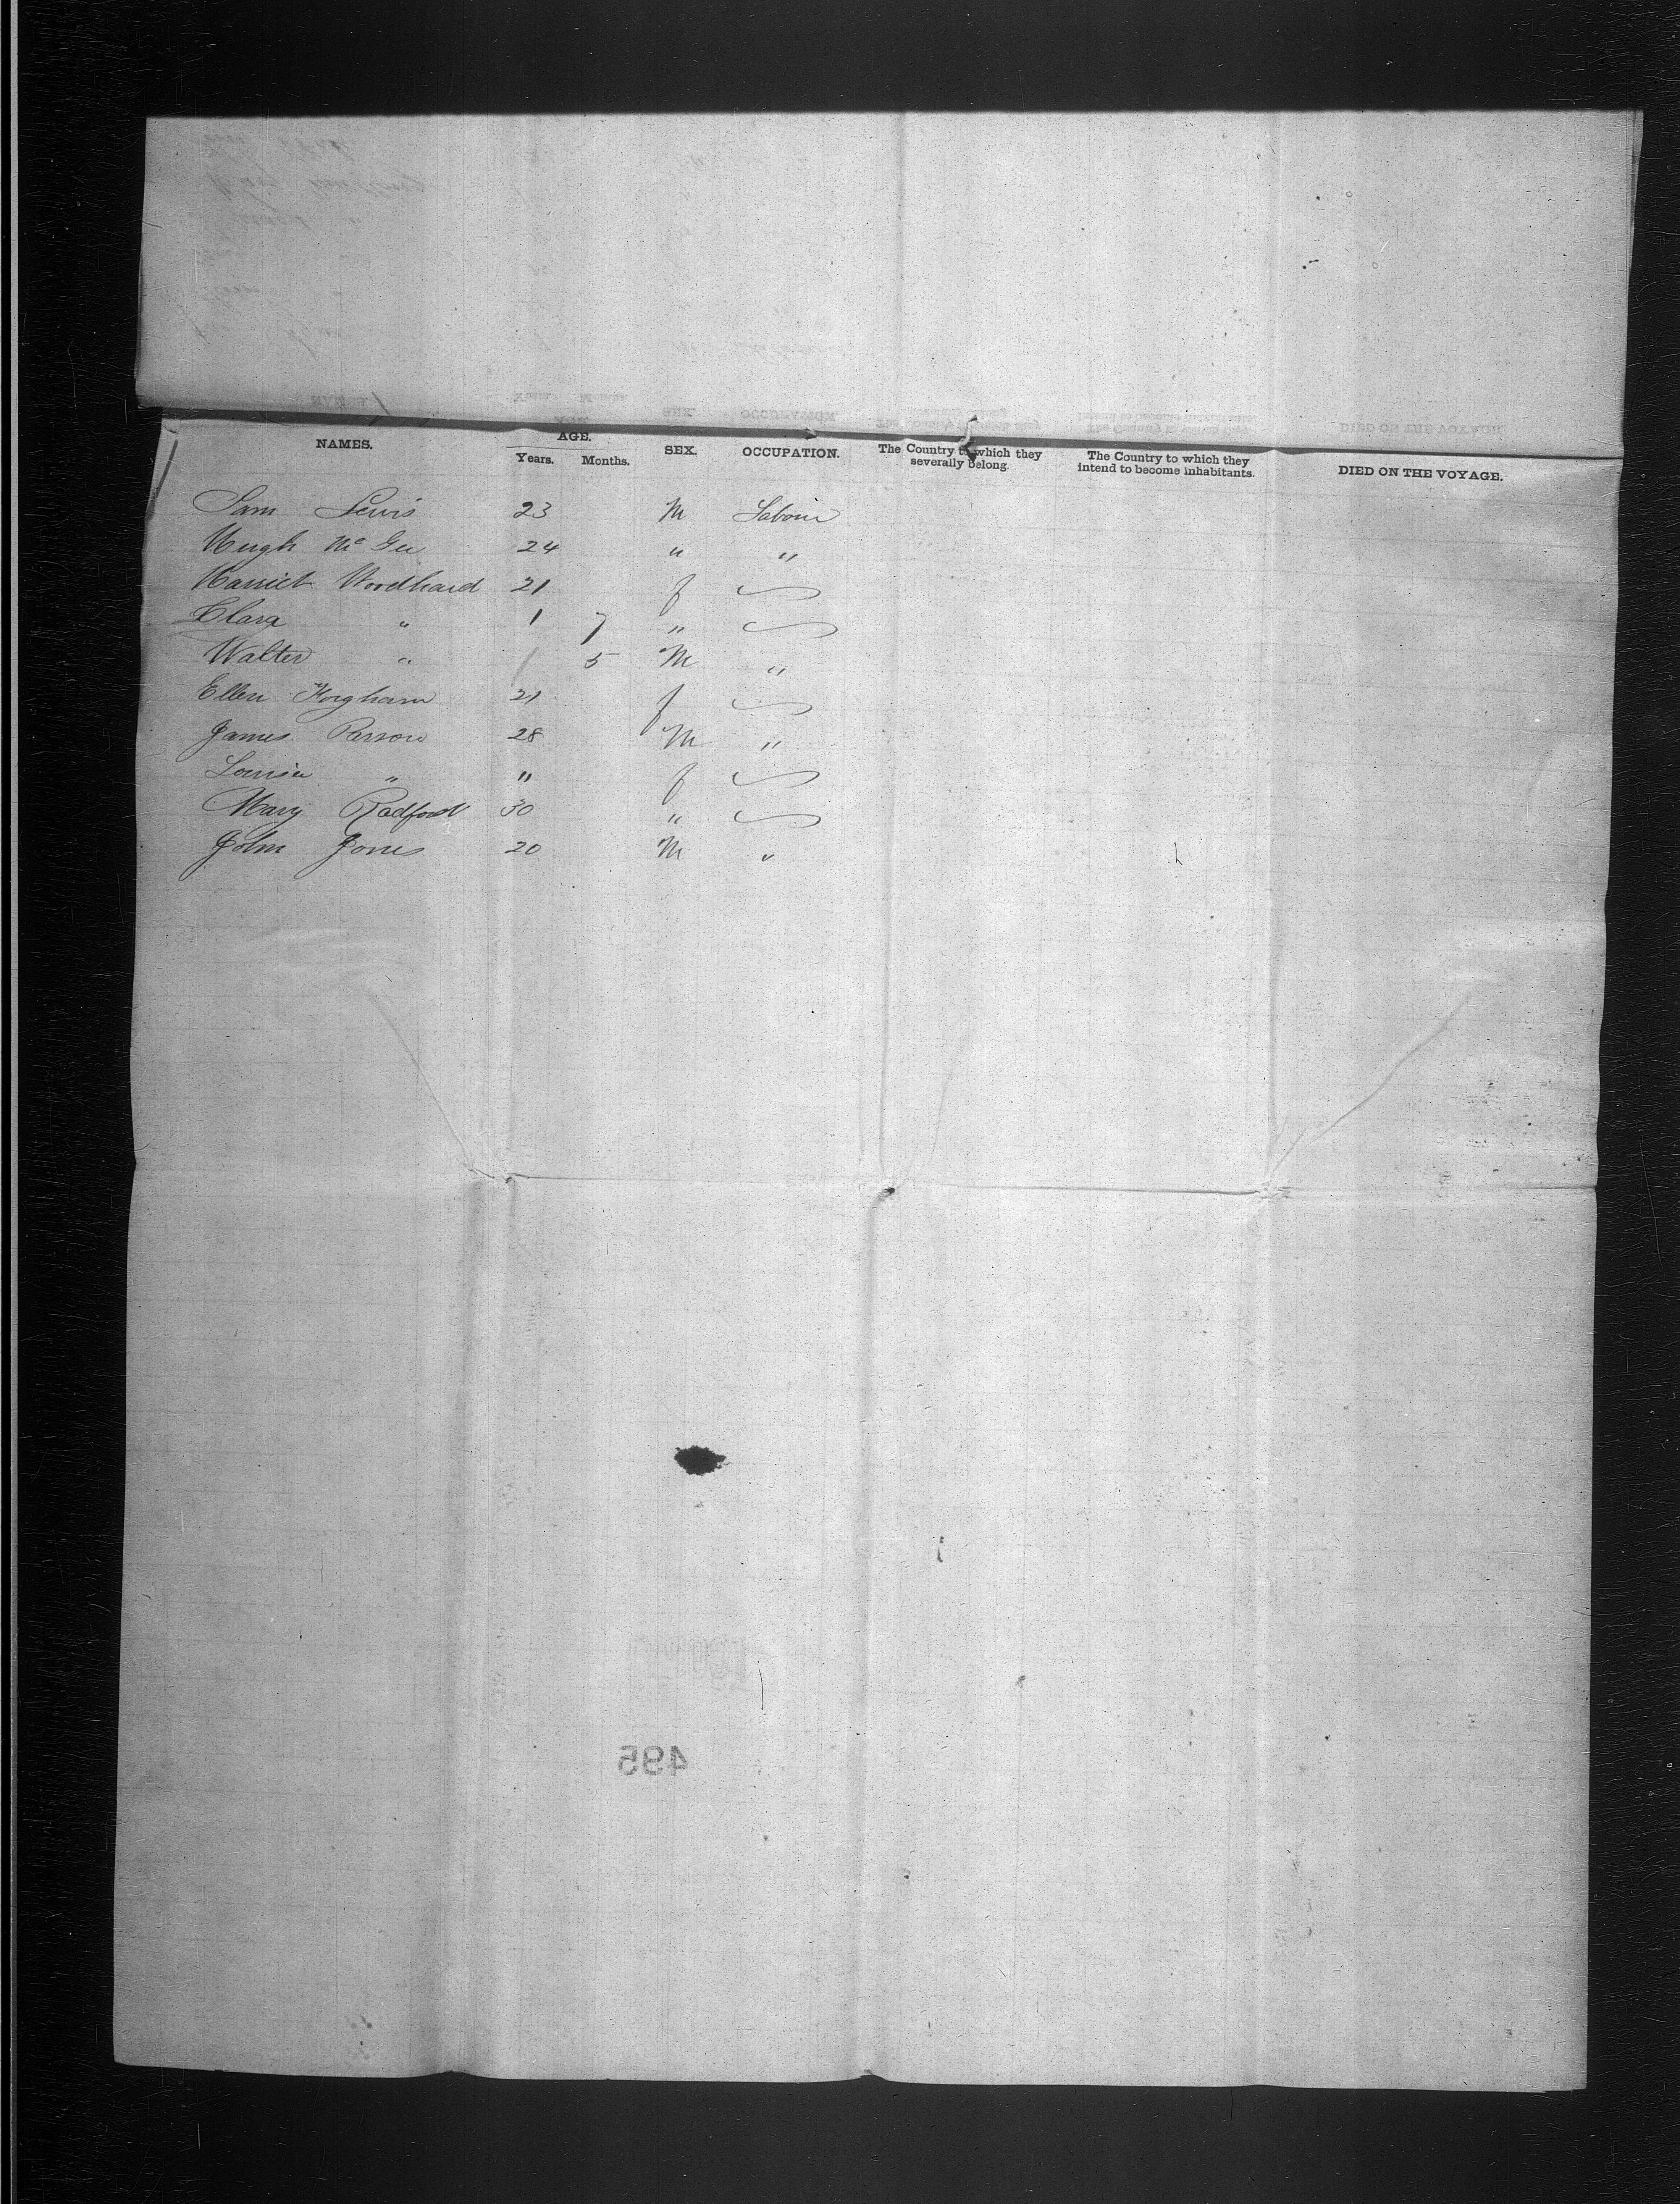 NAMES. AGE. Years. Months. SEX. OCCUPATION. The Country to which they severally belong. The Country to which they intend to become inhabitants. DIED ON THE VOYAGE.
Sam Lewis 23 M Labour
Hugh Mc Gee 24 " "
Harriet Woodhead 21 f
Clara " 1 7 "
Walter " / 5 M "
Ellen 21 f
James Parson 28 M "
Louisa " " f
Mary Radford 30 "
John Jones 20 M "
495